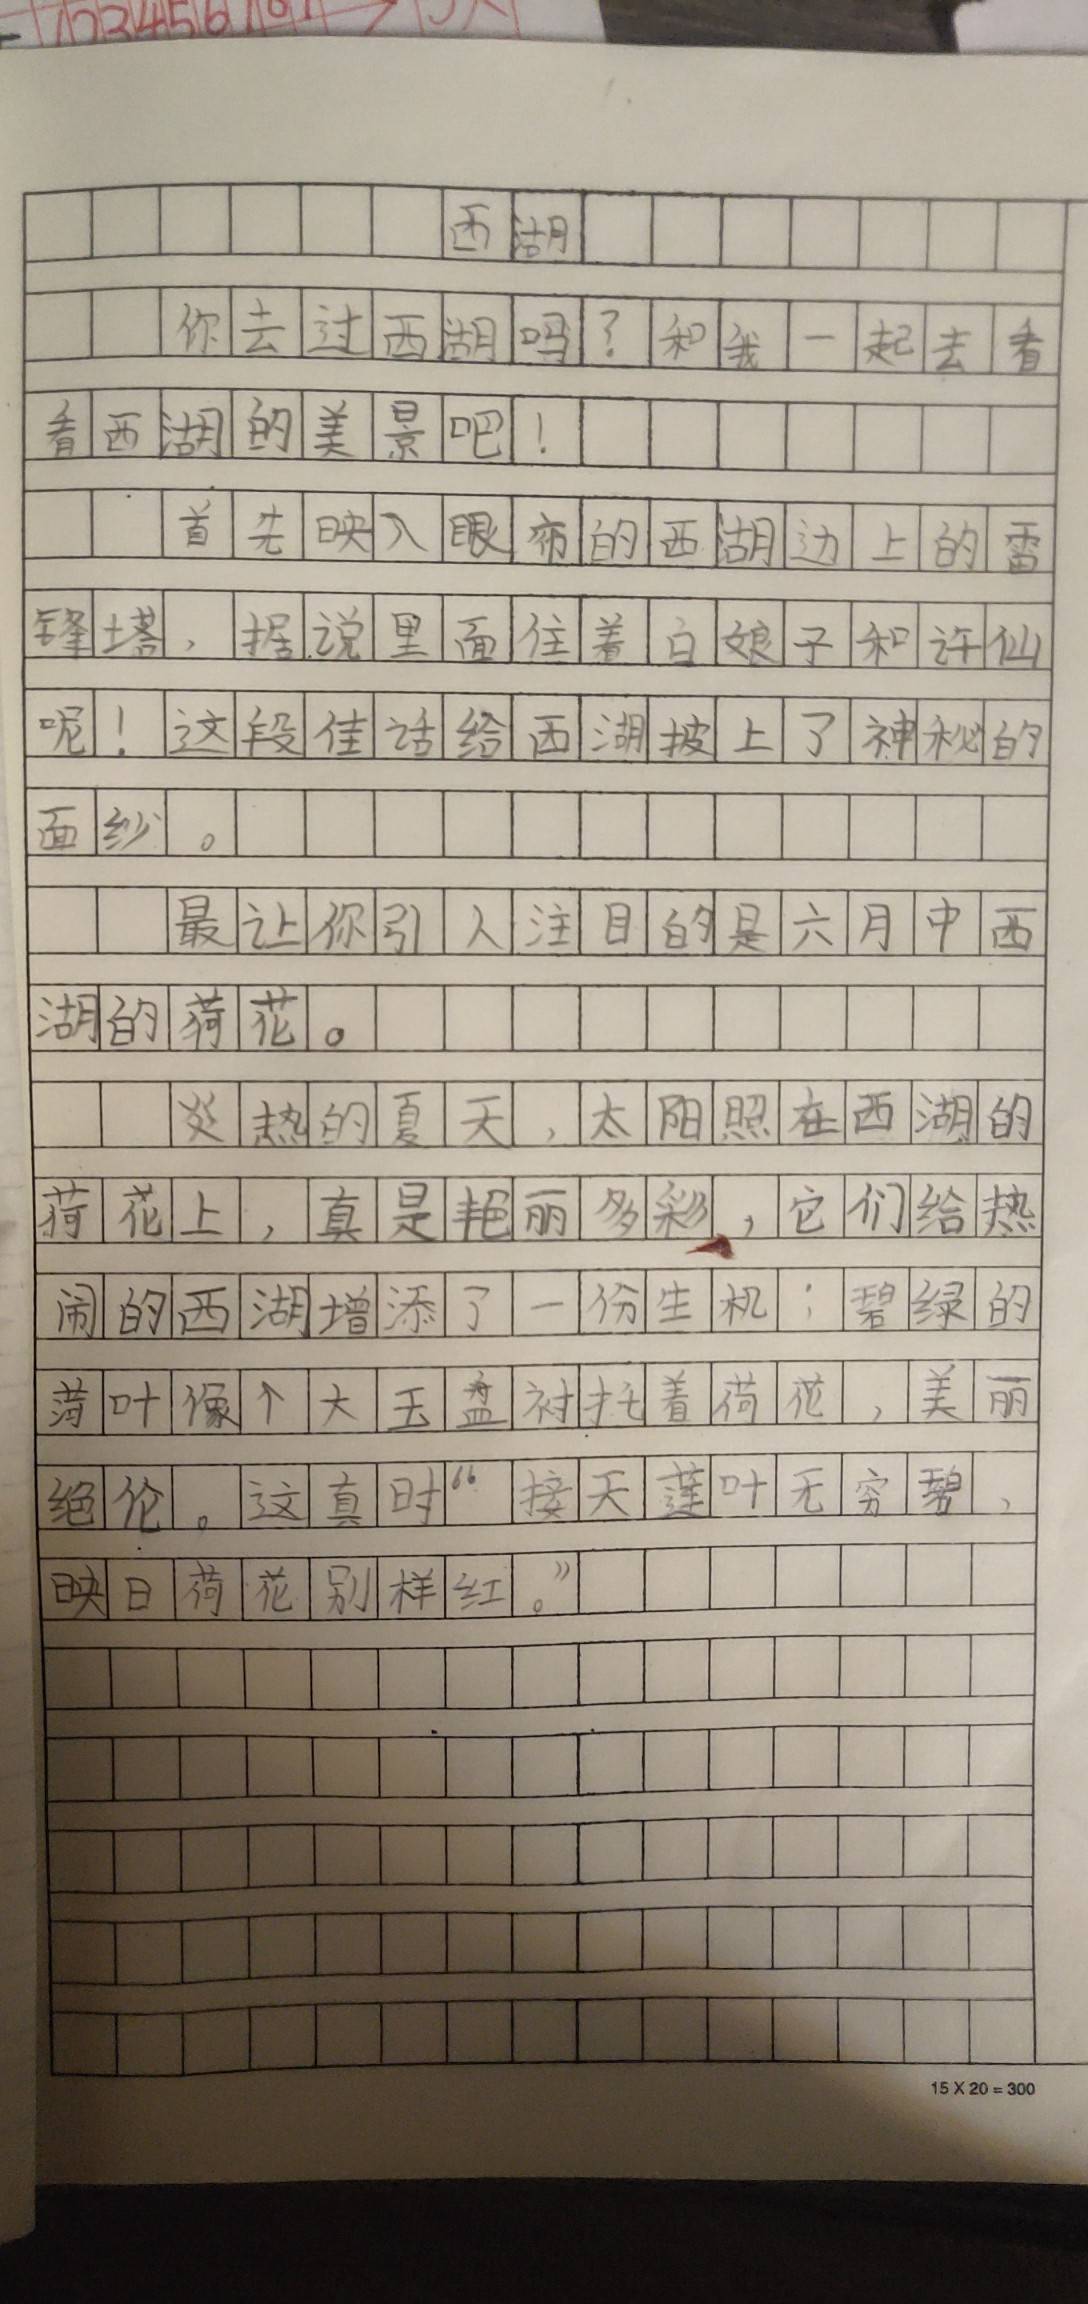 西湖
你去过西湖吗？和我一起去看
看西湖的美景吧！
首先映入眼帘的西湖边上的雷
锋塔，据说里面住着白娘子和许仙
呢！这段佳话给西湖披上了神秘的
面纱。
最让你引人注目的是六月中西
湖的荷花。
炎热的夏天，太阳照在西湖的
荷花上，真是艳丽多彩，它们给热
闹的西湖增添了一份生机；碧绿的
荷叶像个大玉盘衬托着荷花，美丽
绝伦。这真时“接天莲叶无穷碧，
映日荷花别样红。”
15 X 20 = 300